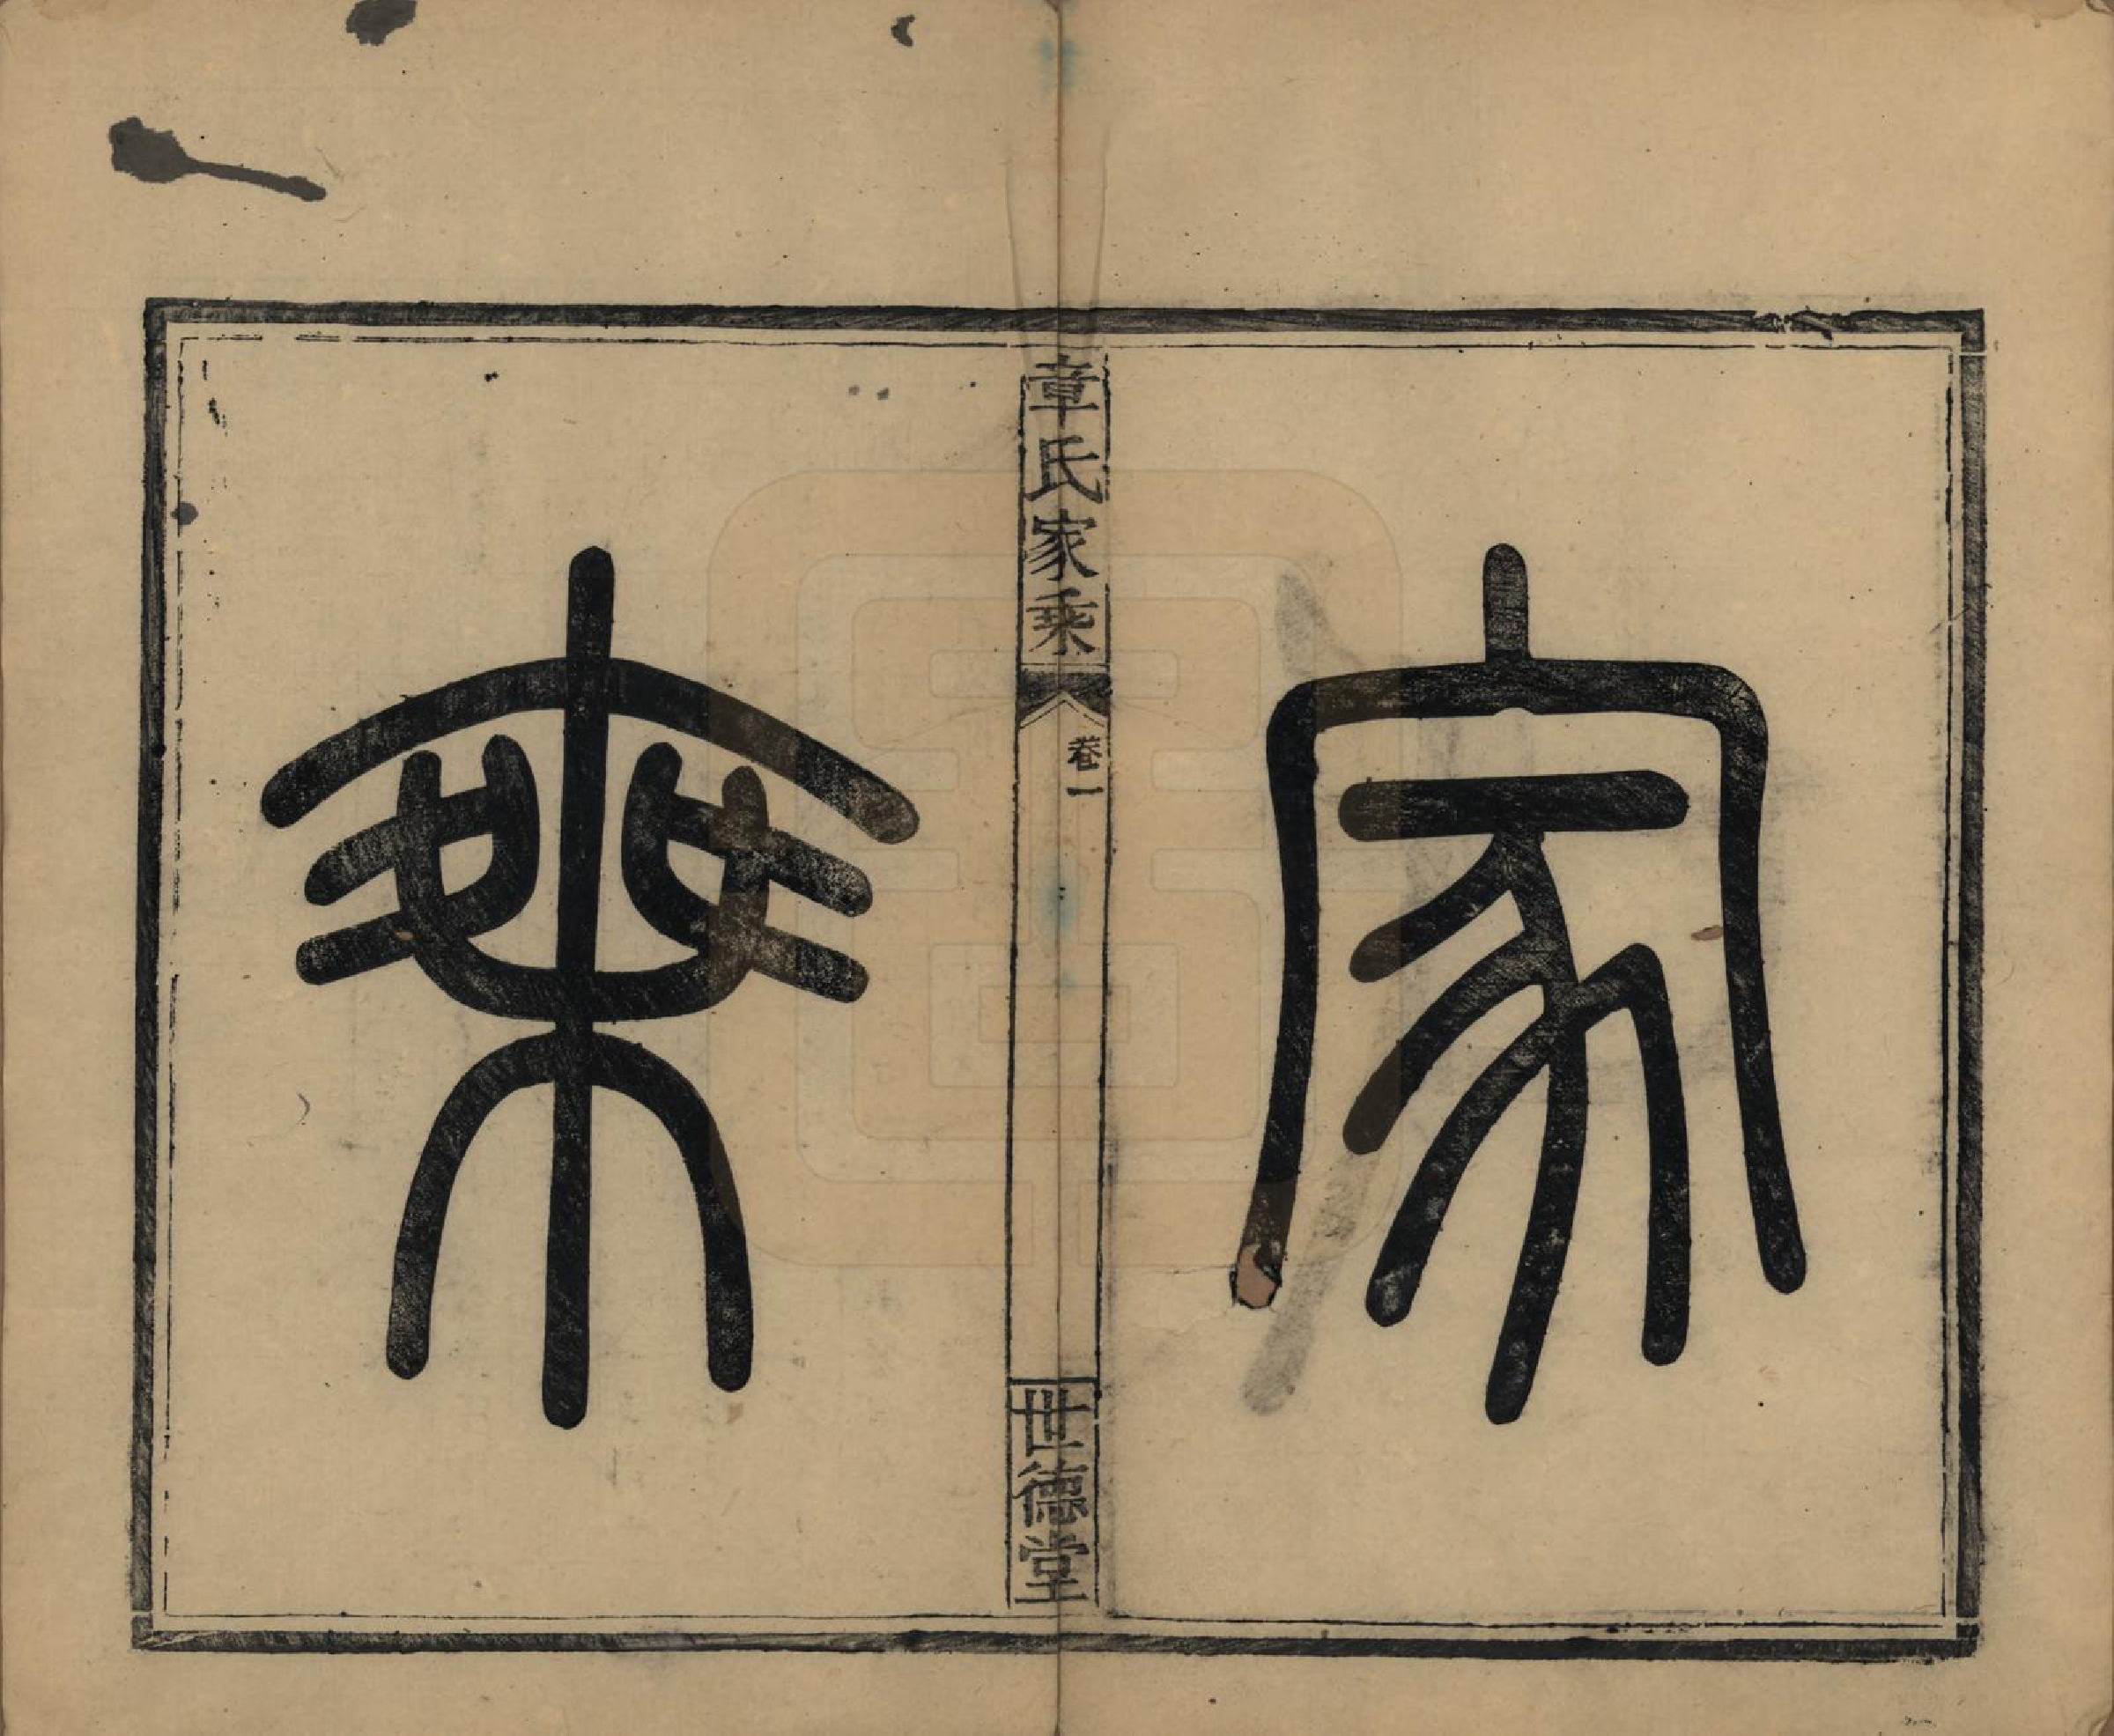 家
章氏家乘
卷一
世德堂
乘